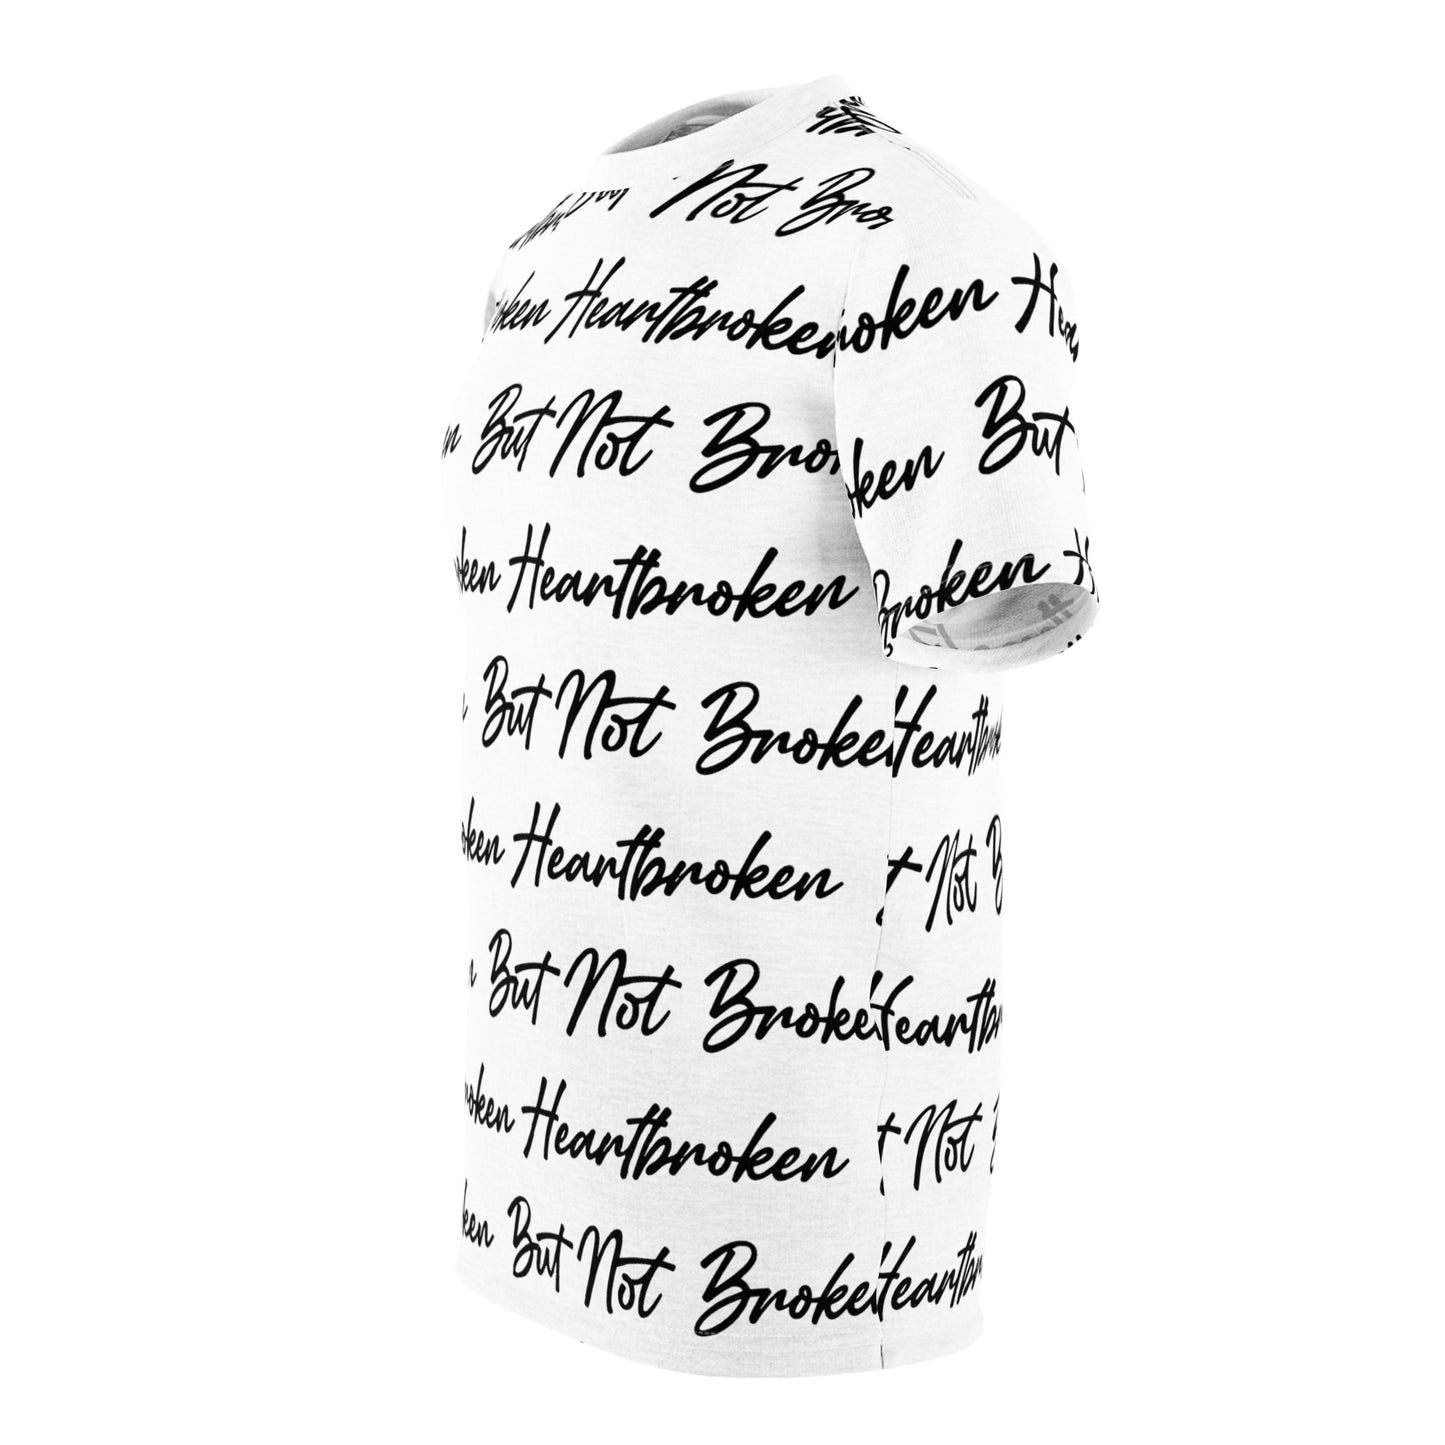 Not Bro
oken Heartbroken oken Hea
n But Not Bro oken But
oken Heartbroken Broken H
n But Not Broke Heartb
oken Heartbroken t Not B
n But Not Broke Heartb
roken Heartbroken t Not
ken But Not Broke Heartbr